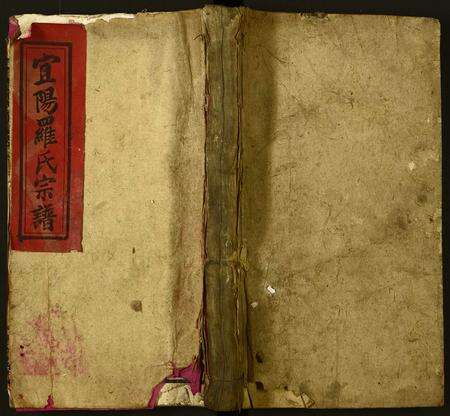 宜陽羅氏宗譜